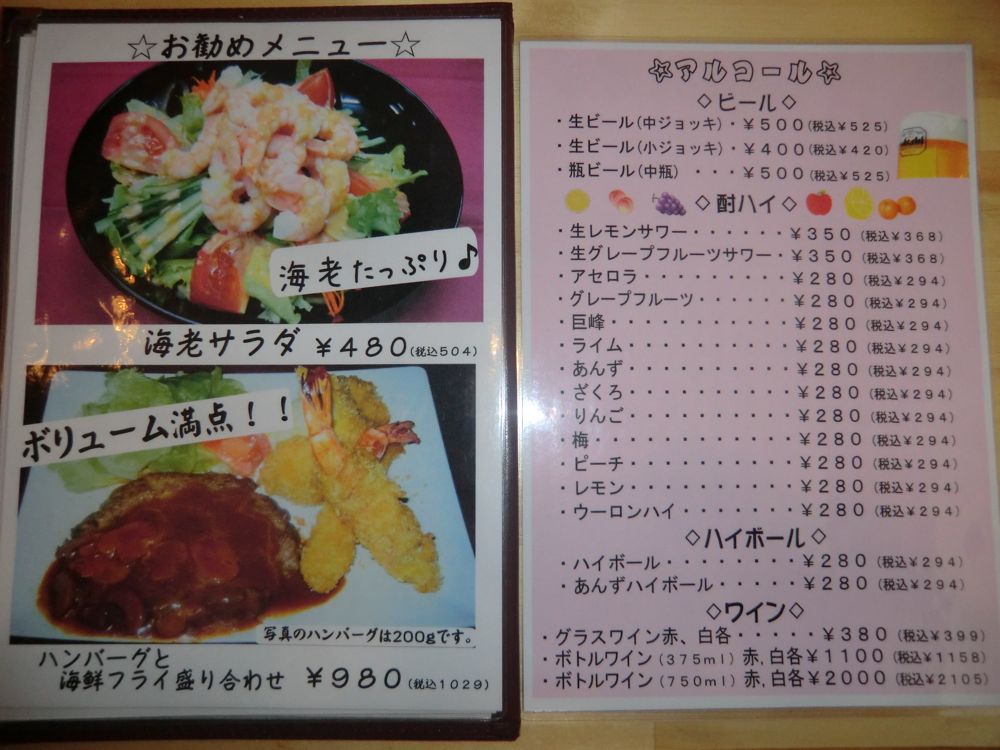 ☆お勧めメニュー☆
海老たっぷり♪
海老サラダ ¥480(税込504)
ボリューム満点！！
写真のハンバーグは200gです。
ハンバーグと
海鮮フライ盛り合わせ ¥980(税込1029)
☆アルコール☆
◇ビール◇
・生ビール(中ジョッキ)・¥500(税込¥525)
・生ビール(小ジョッキ)・¥400(税込¥420)
・瓶ビール(中瓶) ・・・¥500(税込¥525)
Asahi
◇酎ハイ◇
・生レモンサワー・・・・・・¥350(税込¥368)
・生グレープフルーツサワー・¥350(税込¥368)
・アセロラ・・・・・・・・・¥280(税込¥294)
・グレープフルーツ・・・・・¥280(税込¥294)
・巨峰・・・・・・・・・・・¥280(税込¥294)
・ライム・・・・・・・・・・¥280(税込¥294)
・あんず・・・・・・・・・・¥280(税込¥294)
・ざくろ・・・・・・・・・・¥280(税込¥294)
・りんご・・・・・・・・・・¥280(税込¥294)
・梅・・・・・・・・・・・・¥280(税込¥294)
・ピーチ・・・・・・・・・・¥280(税込¥294)
・レモン・・・・・・・・・・¥280(税込¥294)
・ウーロンハイ・・・・・・・¥280(税込¥294)
◇ハイボール◇
・ハイボール・・・・・・・・¥280(税込¥294)
・あんずハイボール・・・・・¥280(税込¥294)
◇ワイン◇
・グラスワイン赤、白各・・・・・¥380(税込¥399)
・ボトルワイン(375ml)赤,白各¥1100(税込¥1158)
・ボトルワイン(750ml)赤,白各¥2000(税込¥2105)